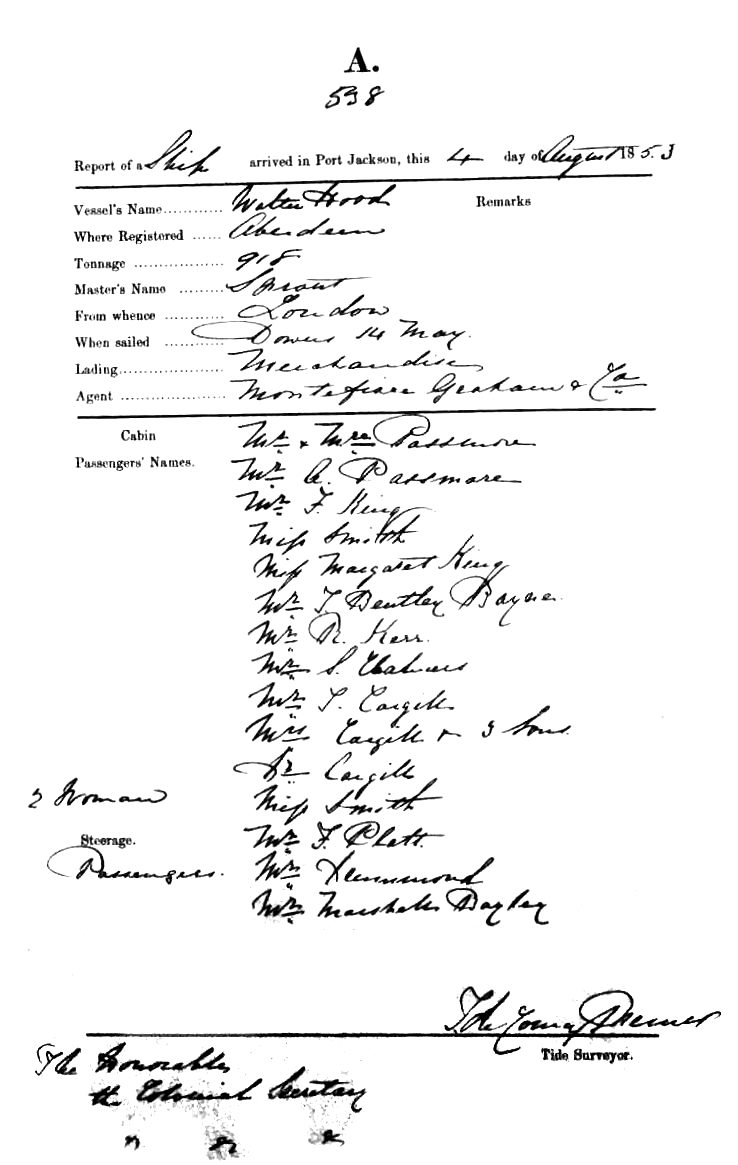 A.
598
Report of a Ship arrived in Port Jackson, this 4 day of August 1853
Vessel's Name............ Walter Hood Remarks
Where Registered ...... Aberdeen
Tonnage .................. 918
Master's Name ......... Sproat
From whence ............ London
When sailed ............ Downs 14 May.
Lading..................... Merchandise
Agent ..................... Montefiore Graham & Co
Cabin Mr & Mrs Passmore
Passengers' Names. Mr A. Passmore
Mr F. King
Miss Smith
Miss Margaret King
Mr T. Bentley Bayne.
Mr R. Kerr.
Mr S. Chalmers
Mr T. Cargill
Mrs Cargill & 3 Sons.
Dr Cargill
2 Woman Miss Smith
Steerage. Mr F. Platt.
Passengers. Mr Hammond
Mr Marshall Bayley
Tide Surveyor.
The Honorable
the Colonial Secretary
" & &